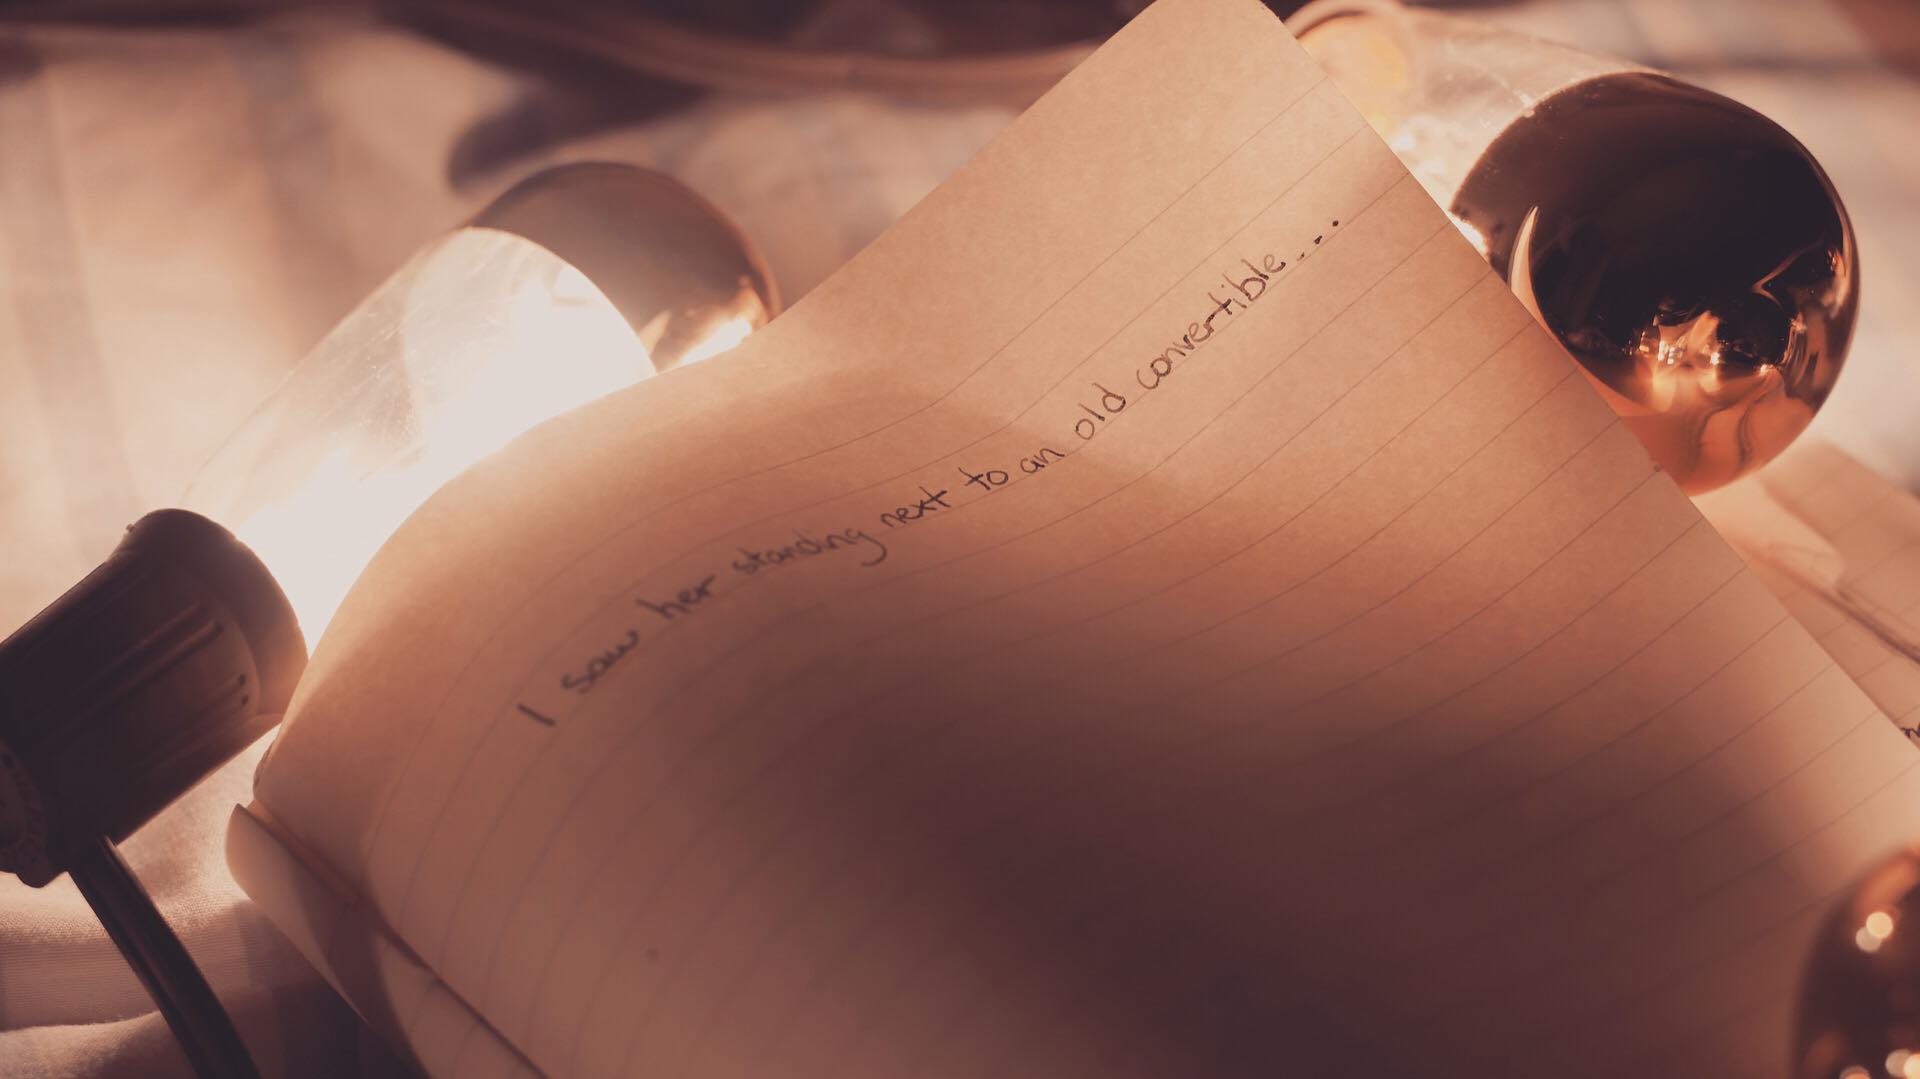 I saw her standing next to an old convertible...